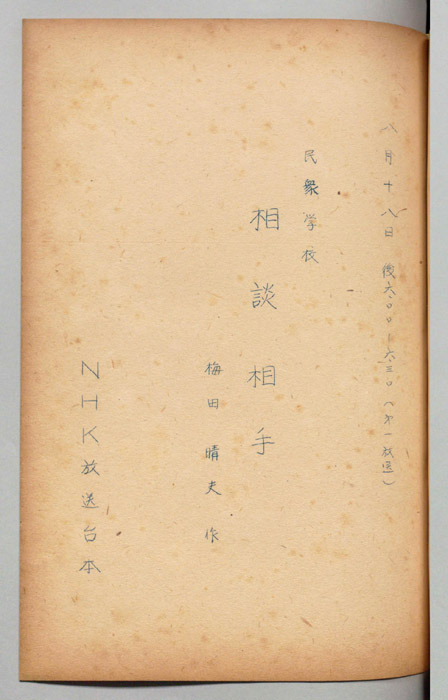 八月十八日 後六・〇〇―六・三〇(第一放送)
民衆学校
相談相手
梅田晴夫 作
NHK放送台本